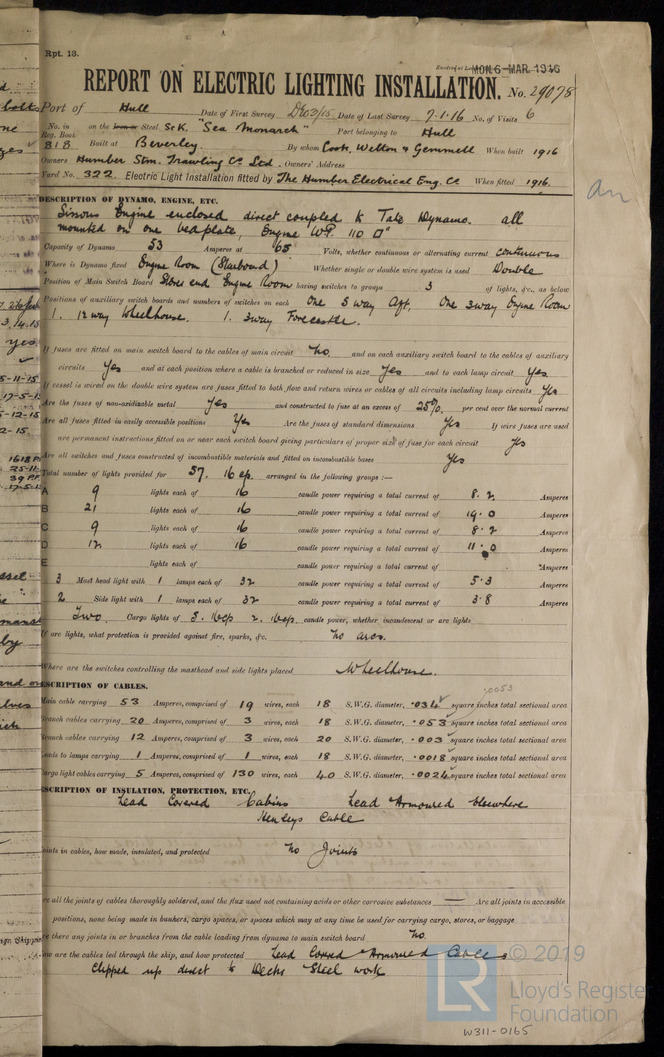 Rpt. 13.
MON. 6-MAR. 1916
REPORT ON ELECTRIC LIGHTING INSTALLATION. No. 29078
Port of Hull Date of First Survey Dec 3/15 Date of Last Survey 7-1-16 No. of Visits 6
No. in Reg. Book 818 on the Iron or Steel ScK. "Sea Monarch" Port belonging to Hull
Built at Beverley. By whom Cook, Welton & Gemmell When built 1916
Owners Humber Stm. Trawling Co Ltd. Owners' Address
Yard No. 322. Electric Light Installation fitted by The Humber Electrical Eng. Co When fitted 1916.
DESCRIPTION OF DYNAMO, ENGINE, ETC.
Sissons Engine enclosed direct coupled to Tate Dynamo. all
mounted on one bedplate, Engine WP. 110 □"
Capacity of Dynamo 53 Amperes at 65 Volts, whether continuous or alternating current continuous
Where is Dynamo fixed Engine Room (Starboard) Whether single or double wire system is used Double
Position of Main Switch Board Stores end Engine Room having switches to groups 3 of lights, &c., as below
Positions of auxiliary switch boards and numbers of switches on each One 5 way Aft, One 3way Engine Room
1. 12 way Wheelhouse. 1. 3way Forecastle.
If fuses are fitted on main switch board to the cables of main circuit No. and on each auxiliary switch board to the cables of auxiliary
circuits Yes and at each position where a cable is branched or reduced in size Yes and to each lamp circuit Yes.
If vessel is wired on the double wire system are fuses fitted to both flow and return wires or cables of all circuits including lamp circuits Yes
Are the fuses of non-oxidizable metal Yes and constructed to fuse at an excess of 25%. per cent over the normal current
Are all fuses fitted in easily accessible positions Yes Are the fuses of standard dimensions Yes If wire fuses are used
are permanent instructions fitted on or near each switch board giving particulars of proper size of fuse for each circuit Yes
Are all switches and fuses constructed of incombustible materials and fitted on incombustible bases Yes
Total number of lights provided for 57. 16 cp. arranged in the following groups :—
A 9 lights each of 16 candle power requiring a total current of 8.2 Amperes
B 21 lights each of 16 candle power requiring a total current of 19.0 Amperes
C 9 lights each of 16 candle power requiring a total current of 8.2 Amperes
D 12 lights each of 16 candle power requiring a total current of 11.0 Amperes
E lights each of candle power requiring a total current of Amperes
3 Mast head light with 1 lamps each of 32 candle power requiring a total current of 5.3 Amperes
2 Side light with 1 lamps each of 32 candle power requiring a total current of 3.8 Amperes
Two. Cargo lights of 5. 16cp 2. 16cp. candle power, whether incandescent or arc lights
If arc lights, what protection is provided against fire, sparks, &c. No arcs.
Where are the switches controlling the masthead and side lights placed Wheelhouse.
DESCRIPTION OF CABLES.
.0053
Main cable carrying 53 Amperes, comprised of 19 wires, each 18 S.W.G. diameter, .034 square inches total sectional area
Branch cables carrying 20 Amperes, comprised of 3 wires, each 18 S.W.G. diameter, .053 square inches total sectional area
Branch cables carrying 12 Amperes, comprised of 3 wires, each 20 S.W.G. diameter, .003 square inches total sectional area
Leads to lamps carrying 1 Amperes, comprised of 1 wires, each 18 S.W.G. diameter, .0018 square inches total sectional area
Cargo light cables carrying 5 Amperes, comprised of 130 wires, each 40 S.W.G. diameter, .0024 square inches total sectional area
DESCRIPTION OF INSULATION, PROTECTION, ETC.
Lead Covered Cabins Lead Armoured Elsewhere
Henleys Cable
Joints in cables, how made, insulated, and protected No Joints
Are all the joints of cables thoroughly soldered, and the flux used not containing acids or other corrosive substances — Are all joints in accessible
positions, none being made in bunkers, cargo spaces, or spaces which may at any time be used for carrying cargo, stores, or baggage
Are there any joints in or branches from the cable leading from dynamo to main switch board No.
How are the cables led through the ship, and how protected Lead Covered & Armoured Cables
Clipped up direct to Decks Steel work
© 2019
LR
Lloyd's Register
Foundation
W311-0165